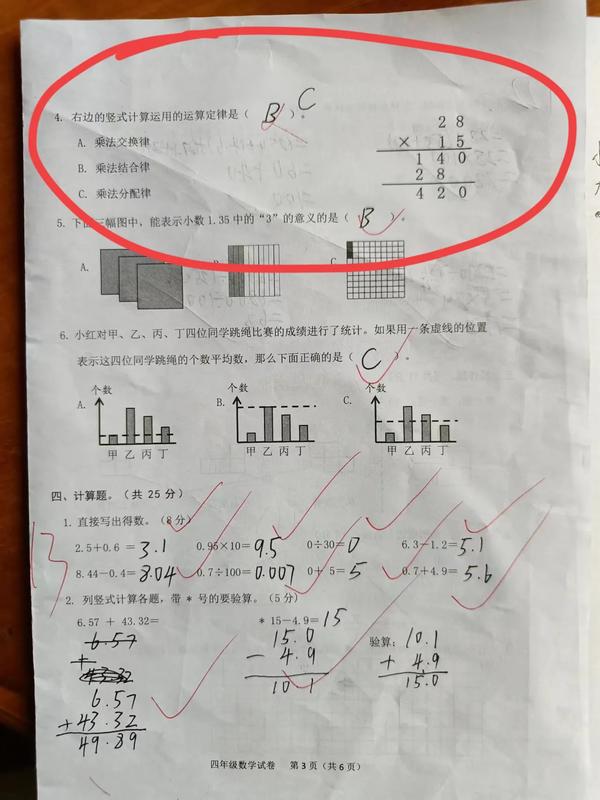 4. 右边的竖式计算运用的运算定律是（ B ）。 C
A. 乘法交换律
B. 乘法结合律
C. 乘法分配律
2 8
× 1 5
1 4 0
2 8
4 2 0
5. 下面三幅图中，能表示小数 1.35 中的“3”的意义的是（ B ）。
A.
B.
C.
6. 小红对甲、乙、丙、丁四位同学跳绳比赛的成绩进行了统计。如果用一条虚线的位置
表示这四位同学跳绳的个数平均数，那么下面正确的是（ C ）。
A. 个数
甲 乙 丙 丁
B. 个数
甲 乙 丙 丁
C. 个数
甲 乙 丙 丁
四、计算题。（共 25 分）
13
1. 直接写出得数。（8 分）
2.5＋0.6 ＝3.1 0.95×10＝9.5 0÷30＝0 6.3－1.2＝5.1
8.44－0.4＝8.04 0.7÷100＝0.007 0＋5＝5 0.7＋4.9＝5.6
2. 列竖式计算各题，带 * 号的要验算。（5 分）
6.57 ＋ 43.32＝ * 15－4.9＝15
6.57
+
6.57
+43.32
49.89
15.0
- 4.9
10 1
验算: 10.1
+ 4.9
15.0
四年级数学试卷 第 3 页（共 6 页）